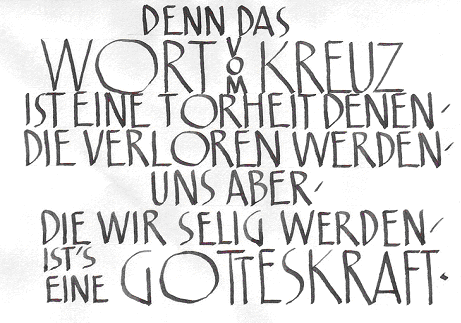 DENN DAS
WORT VOM KREUZ
IST EINE TORHEIT DENEN/
DIE VERLOREN WERDEN/
UNS ABER/
DIE WIR SELIG WERDEN/
IST'S
EINE GOTTESKRAFT.